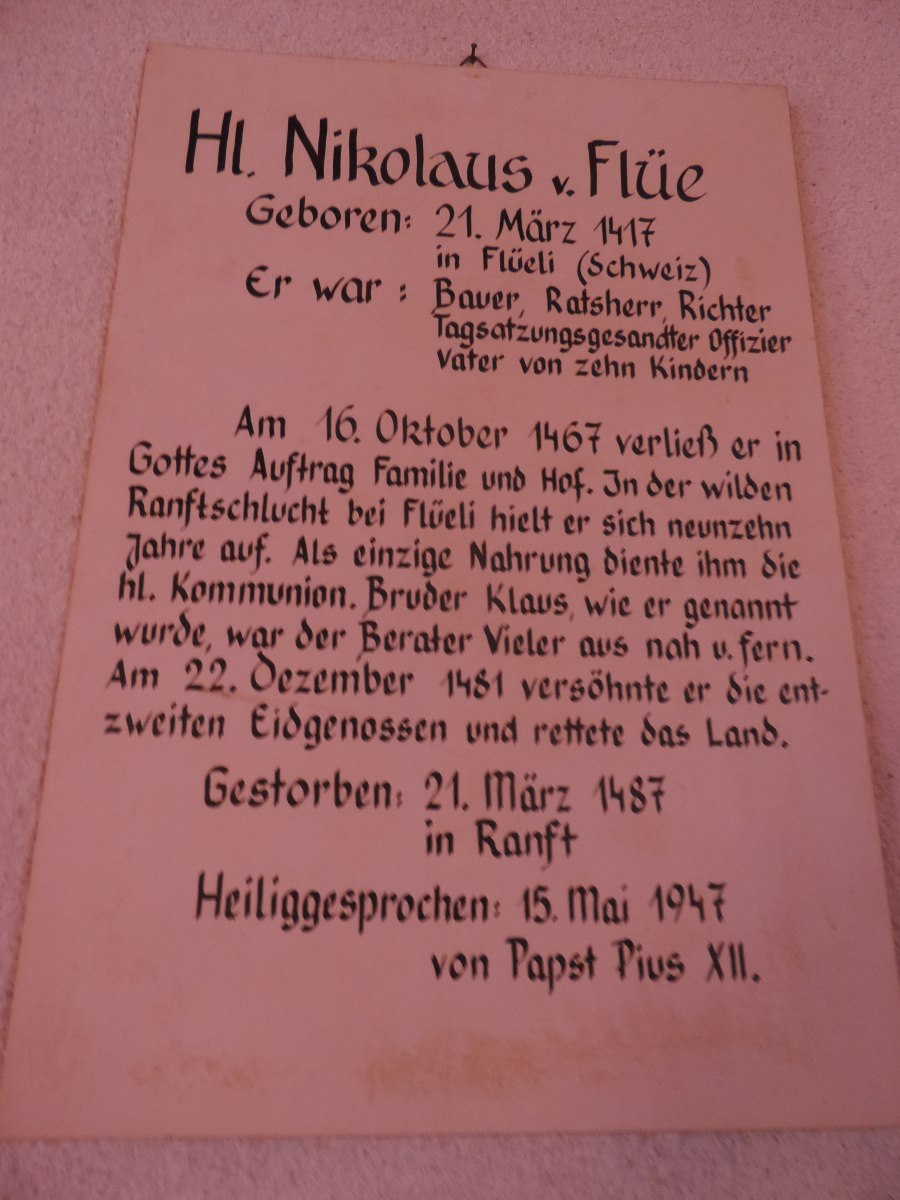 Hl. Nikolaus v. Flüe
Geboren: 21. März 1417
in Flüeli (Schweiz)
Er war : Bauer, Ratsherr, Richter
Tagsatzungsgesandter Offizier
Vater von zehn Kindern
Am 16. Oktober 1467 verließ er in
Gottes Auftrag Familie und Hof. In der wilden
Ranftschlucht bei Flüeli hielt er sich neunzehn
Jahre auf. Als einzige Nahrung diente ihm die
hl. Kommunion. Bruder Klaus, wie er genannt
wurde, war der Berater Vieler aus nah u. fern.
Am 22. Dezember 1481 versöhnte er die ent-
zweiten Eidgenossen und rettete das Land.
Gestorben: 21. März 1487
in Ranft
Heiliggesprochen: 15. Mai 1947
von Papst Pius XII.